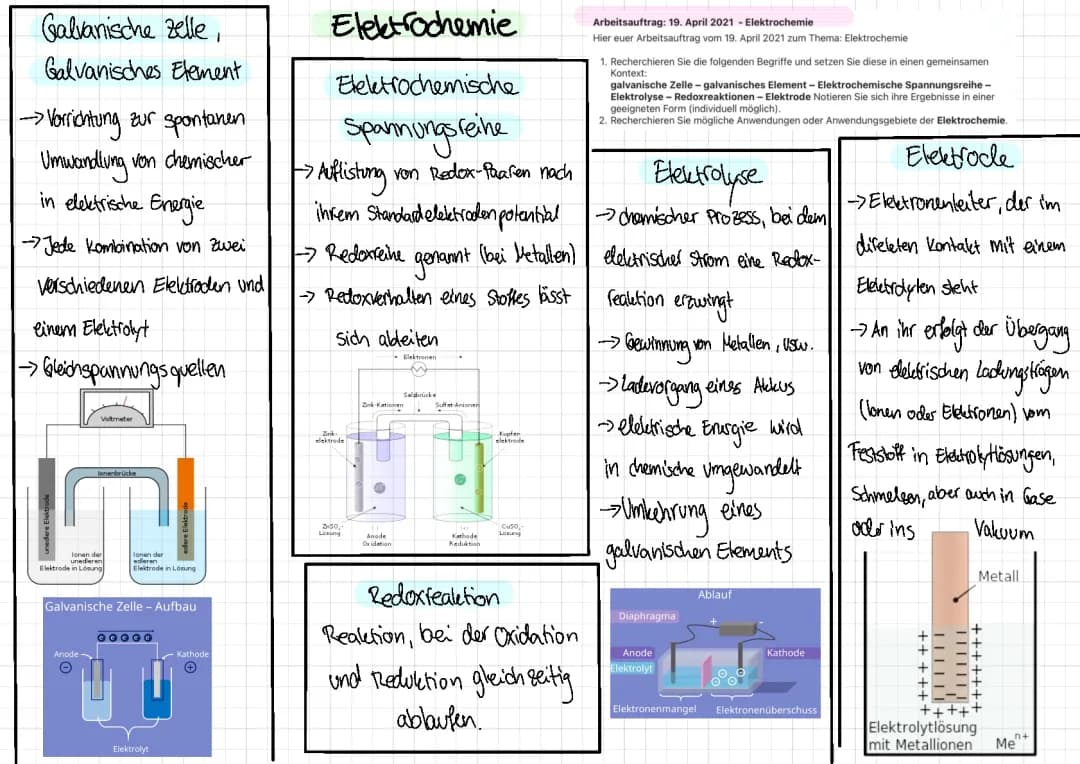 Galvanische Zelle,
Galvanisches Element
→ Vorrichtung zur spontanen
Umwandlung von chemischer
in elektrische Energie
→ Jede Kombination von zwei
verschiedenen Elektroden und
einem Elektrolyt
→ Gleichspannungsquellen
Voltmeter
Ionenbrücke
unedlere Elektrode
edlere Elektrode
Ionen der
unedleren
Elektrode in Lösung
Ionen der
edleren
Elektrode in Lösung
Galvanische Zelle – Aufbau
e e e e e
Anode
Kathode
Elektrolyt
Elektrochemie
Elektrochemische
Spannungsreihe
→ Auflistung von Redox-Paaren nach
ihrem Standardelektrodenpotential
→ Redoxreihe genannt (bei Metallen)
→ Redoxverhalten eines Stoffes lässt
sich ableiten
Elektronen
Salzbrücke
Zink-Kationen
Sulfat-Anionen
Zink-
elektrode
Kupfer
elektrode
ZnSO₄-
Lösung
Anode
Oxidation
Kathode
Reduktion
CuSO₄-
Lösung
Redoxreaktion
Reaktion, bei der Oxidation
und Reduktion gleichzeitig
ablaufen.
Arbeitsauftrag: 19. April 2021 - Elektrochemie
Hier euer Arbeitsauftrag vom 19. April 2021 zum Thema: Elektrochemie
1. Recherchieren Sie die folgenden Begriffe und setzen Sie diese in einen gemeinsamen
Kontext:
galvanische Zelle – galvanisches Element – Elektrochemische Spannungsreihe –
Elektrolyse – Redoxreaktionen – Elektrode Notieren Sie sich ihre Ergebnisse in einer
geeigneten Form (individuell möglich).
2. Recherchieren Sie mögliche Anwendungen oder Anwendungsgebiete der Elektrochemie.
Elektrolyse
→ chemischer Prozess, bei dem
elektrischer Strom eine Redox-
reaktion erzwingt
→ Gewinnung von Metallen, usw.
→ Ladevorgang eines Akkus
→ elektrische Energie wird
in chemische umgewandelt
→ Umkehrung eines
galvanischen Elements
Ablauf
Diaphragma
+ -
Anode
Kathode
Elektrolyt
Elektronenmangel
Elektronenüberschuss
Elektrode
→ Elektronenleiter, der im
direkten Kontakt mit einem
Elektrolyten steht
→ An ihr erfolgt der Übergang
von elektrischen Ladungsträgen
(Ionen oder Elektronen) vom
Feststoff in Elektrolytlösungen,
Schmelzen, aber auch in Gase
oder ins Vakuum
Metall
Elektrolytlösung
mit Metallionen Meⁿ⁺